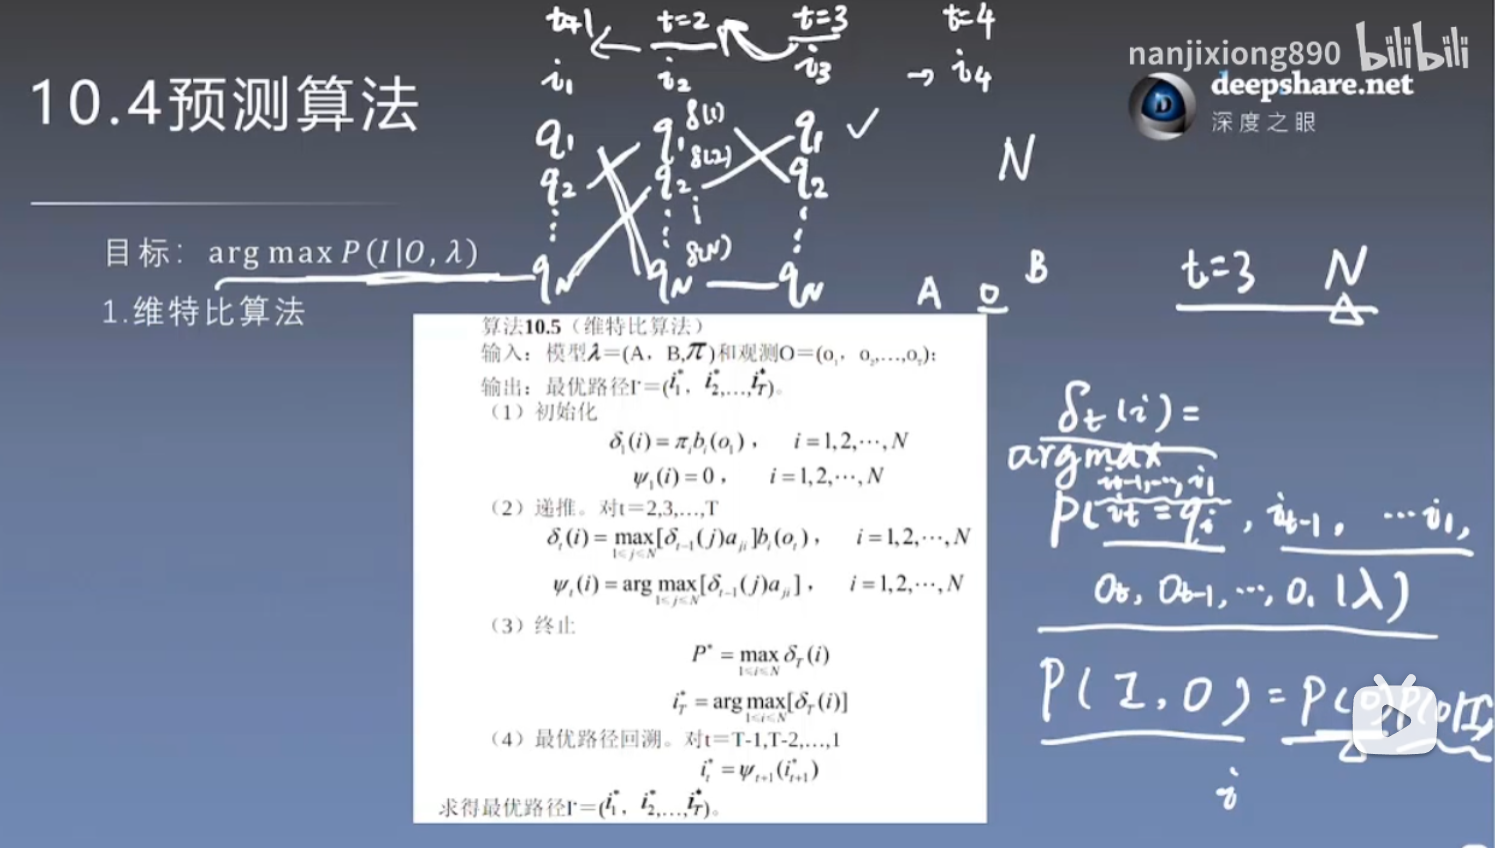 10.4预测算法
目标: arg max P(I|O, λ)
1.维特比算法
t=1 t=2 t=3 t=4
i₁ i₂ i₃ → i₄
q₁ q₁ δ(1) q₁ ✓
q₂ q₂ δ(2) q₂
⋮ ⋮ i ⋮
qN qN δ(N) qN
N
A O B
t=3 N
nanjixiong890 bilibili
deepshare.net
深度之眼
算法10.5（维特比算法）
输入：模型λ=(A，B,π)和观测O=(o₁，o₂,…,o_T)；
输出：最优路径I*=(i₁*，i₂*,…,i_T*)。
（1）初始化
δ₁(i)=πᵢbᵢ(o₁)， i=1,2,⋯,N
ψ₁(i)=0， i=1,2,⋯,N
（2）递推。对t=2,3,…,T
δₜ(i)=max[δₜ₋₁(j)aⱼᵢ]bᵢ(oₜ)， i=1,2,⋯,N
1≤j≤N
ψₜ(i)=arg max[δₜ₋₁(j)aⱼᵢ]， i=1,2,⋯,N
1≤j≤N
（3）终止
P* = max δ_T(i)
1≤i≤N
i_T* = arg max[δ_T(i)]
1≤i≤N
（4）最优路径回溯。对t=T-1,T-2,…,1
iₜ* = ψₜ₊₁(iₜ₊₁*)
求得最优路径I*=(i₁*，i₂*,…,i_T*)。
δₜ(i)=
argmax
iₜ₋₁,…,i₁
P(iₜ=qᵢ, iₜ₋₁, …i₁,
Oₜ, Oₜ₋₁,…,O₁|λ)
P(I,O)=P(O)P(O|I
i